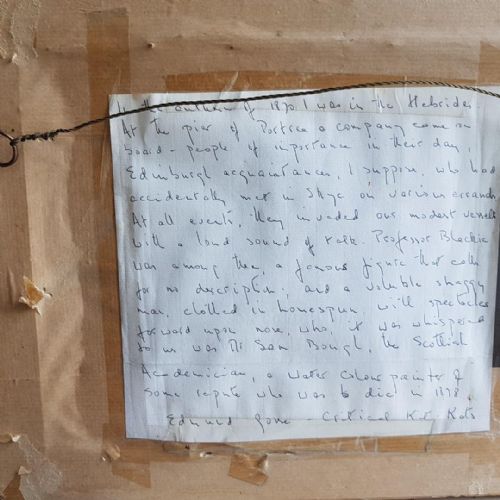 In the autumn of 1870 I was in the Hebrides
At the pier of Portree a company came on
board - people of importance in their day,
Edinburgh acquaintances, I suppose, who had
accidentally met in Skye on various errands
At all events, they invaded our modest vessel
with a loud sound of talk. Professor Blackie
was among them, a famous figure that calls
for no description; and a voluble shaggy
man, clothed in homespun, with spectacles
forward upon nose, who, it was whispered
to us was Mr Sam Bough, the Scottish
Academician, a water colour painter of
some repute who was to died in 1878.
Edmund Gosse Critical Kit-Kats